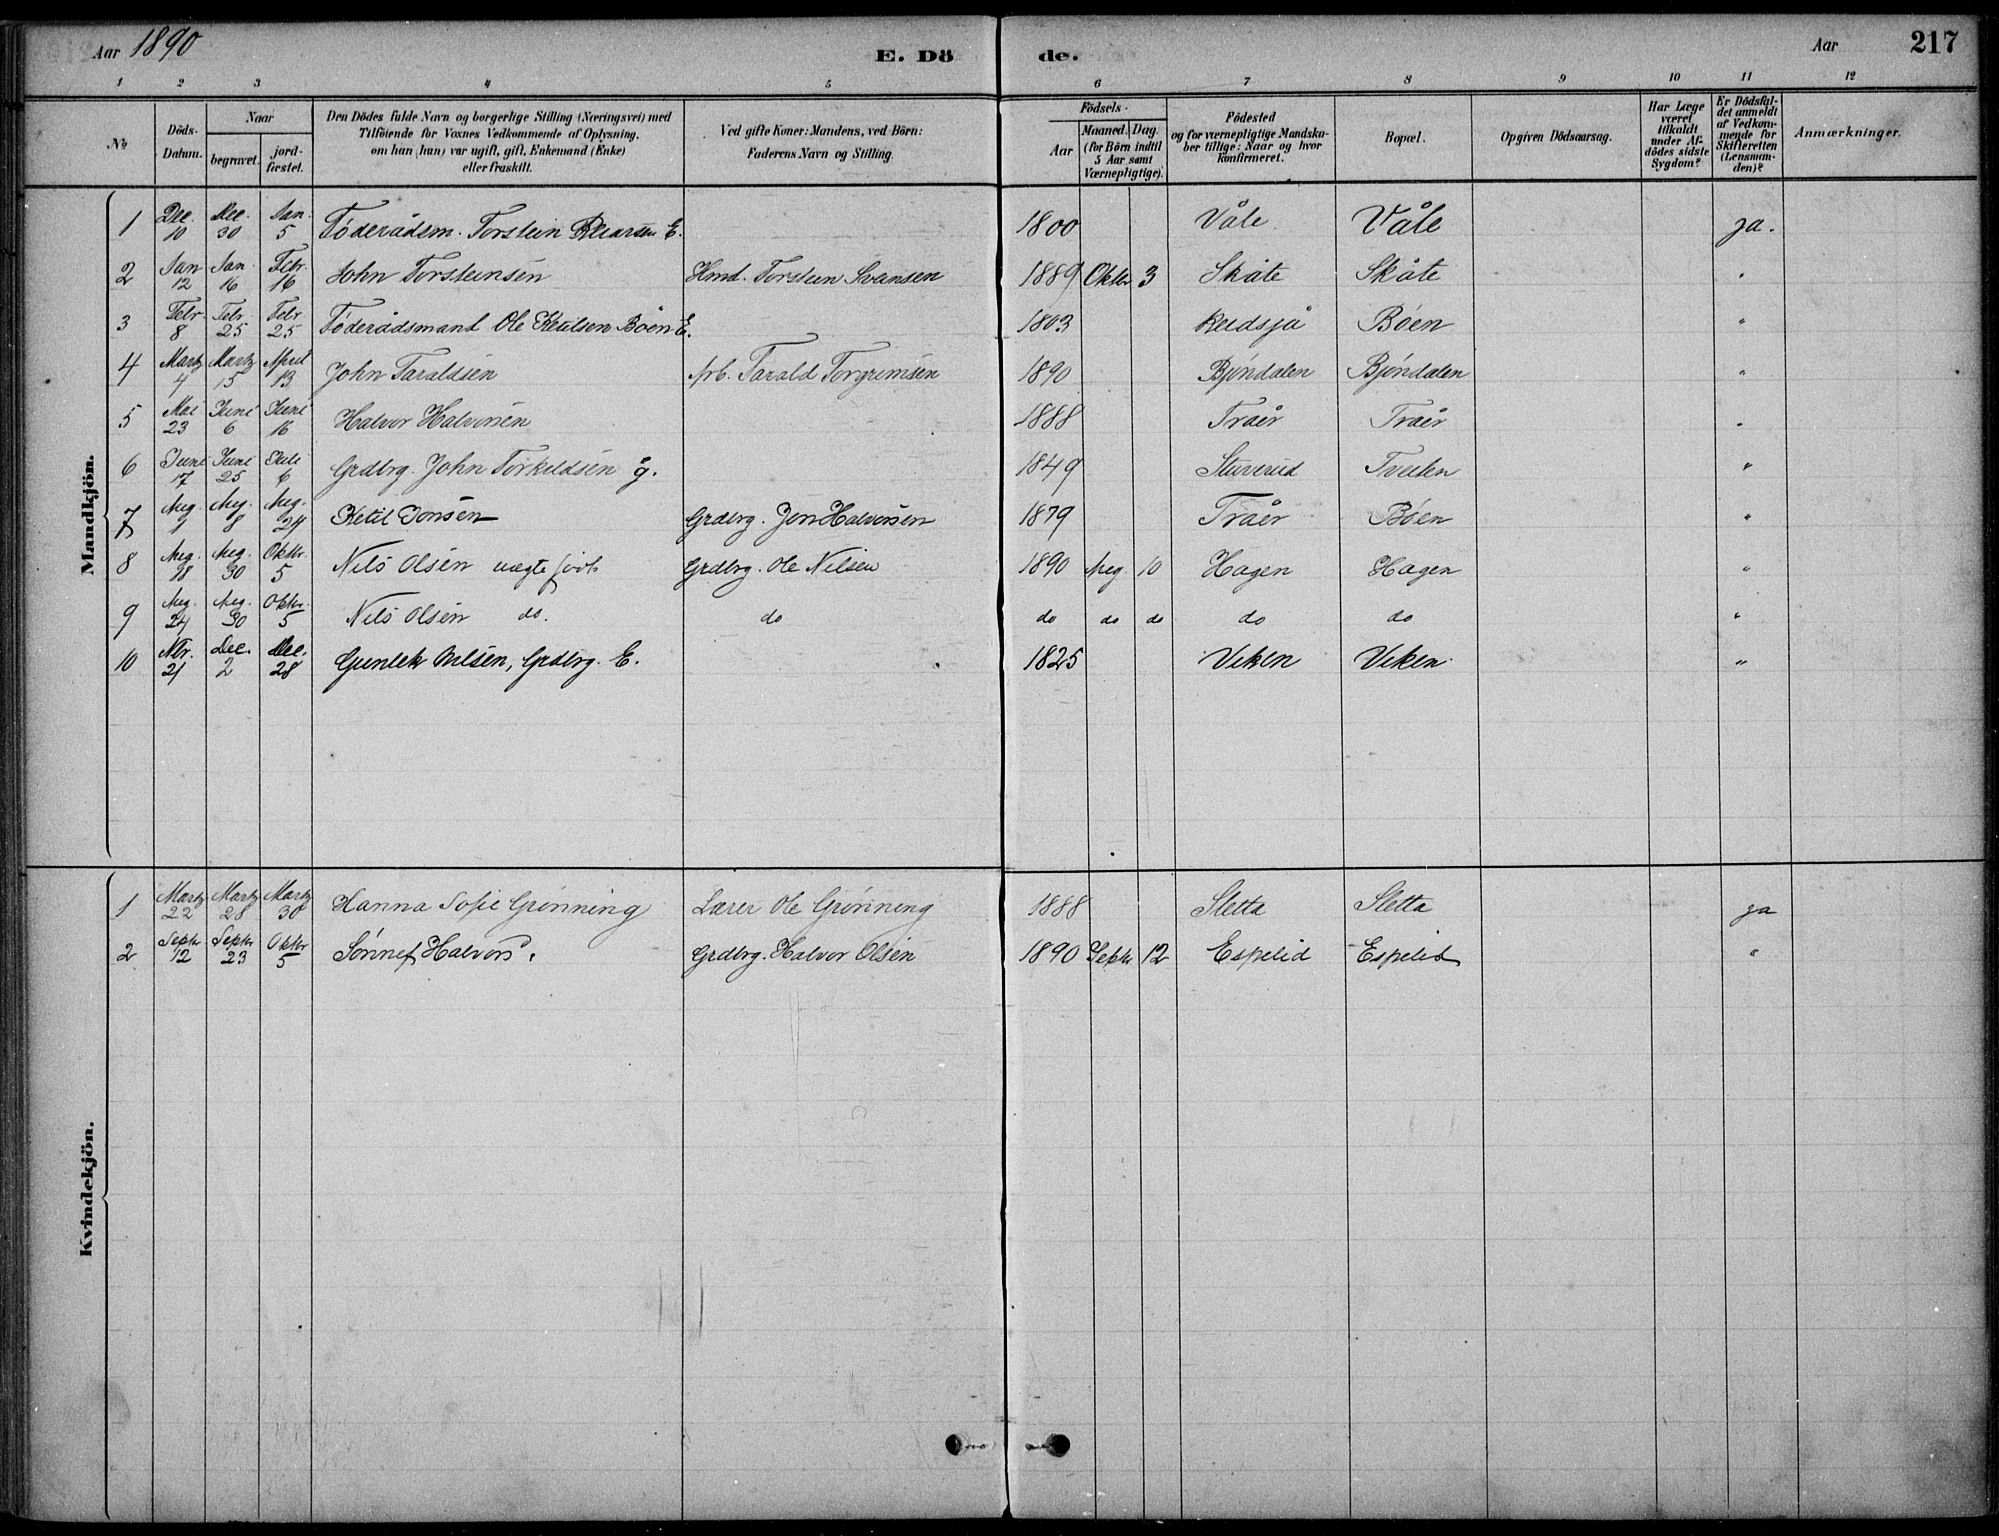 Aar 1890
E. Dö de.
Aar
217
1 2 3 4 5 6 7 8 9 10 11 12
No
Döds-Datum.
Naar
begravet.
jord-fæstet.
Den Dödes fulde Navn og borgerlige Stilling (Næringsvei) med
Tilföiende for Voxnes Vedkommende af Oplysning,
om han (hun) var ugift, gift, Enkemand (Enke)
eller fraskilt.
Ved gifte Koner: Mandens, ved Börn:
Faderens Navn og Stilling.
Födsels-
Aar
Maaned. Dag.
(for Börn indtil
5 Aar samt
Værnepligtige).
Födested
og for værnepligtige Mandska-
ber tillige: Naar og hvor
konfirmeret.
Bopæl.
Opgiven Dödsaarsag.
Har Læge
været
tilkaldt
under Af-
dödes sidste
Sygdom?
Er Dödsfal-
det anmeldt
af Vedkom-
mende for
Skifteretten
(Lensman-
den)?
Anmærkninger.
Mandkjön.
1 Dec. 10 Dec. 30 Jan. 5 Föderådsm. Torstein E. 1800 Våle Våle ja.
2 Jan 12 Jan 16 Febr. 16 John Torsteinsen Hmd. Torstein Svansen 1889 Oktbr 3 Skåte Skåte "
3 Febr. 8 Febr. 25 Febr. 25 Föderådsmand Ole Ketilsen Böen E. 1803 Böen "
4 Marts 4 Marts 15 April 13 John Taraldsen Arb. Tarald Torgrimsen 1890 Bjöndalen Bjöndalen "
5 Mai 23 Juni 6 Juni 16 Halvor Halvorsen 1888 Traer Traer "
6 Juni 17 Juni 25 Juli 6 Grdbrg. John Torkildsen g. 1849 Stuverud Tveiten "
7 Aug. 1 Aug. 8 Aug. 24 Ketil Jonsen Grdbrg. Jon Halvorsen 1879 Tråer Böen "
8 Aug. 18 Aug. 30 Oktbr. 5 Nils Olsen uægte født Grdbrg. Ole Nilsen 1890 Aug. 10 Hagen Hagen "
9 Aug. 24 Aug. 30 Oktbr. 5 Nils Olsen do. do do do do do do "
10 Nbr. 21 Dec. 2 Dec. 28 Gunlek Nilsen, Grdbrg. E. 1825 Viken Viken "
Kvindekjön.
1 Marts 22 Marts 28 Marts 30 Hanna Sofie Grönning Lærer Ole Grönning 1888 Sletta Sletta ja
2 Septbr 12 Septbr 23 Oktbr 5 Sönnef Halvors. Grdbrg. Halvor Olsen 1890 Septbr 12 Espelid Espelid "